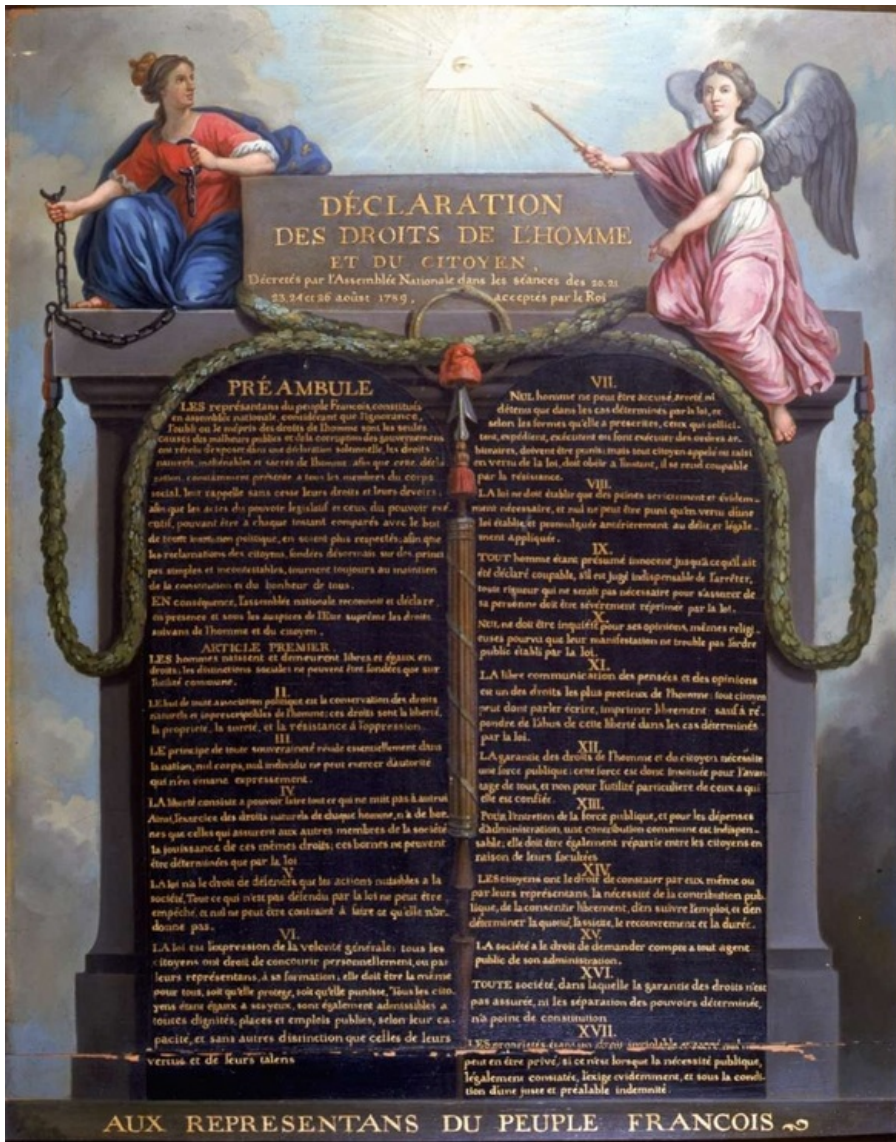 DÉCLARATION
DES DROITS DE L'HOMME
ET DU CITOYEN,
Décretés par l'Assemblée Nationale dans les séances des 20. 21
23. 24 et 26 août 1789, acceptés par le Roi
PRÉAMBULE
LES représentans du peuple François, constitués
en assemblée nationale, considérant que l'ignorance,
l'oubli ou le mépris des droits de l'homme sont les seules
causes des malheurs publics et de la corruption des gouvernemens
ont résolu d'exposer dans une déclaration solemnelle, les droits
naturels, inaliénables et sacrés de l'homme, afin que cette décla
ration, constamment présente a tous les membres du corps
social, leur rappelle sans cesse leurs droits et leurs devoirs,
afin que les actes du pouvoir legislatif et ceux du pouvoir exé
cutif, pouvant être à chaque instant comparés avec le but
de toute institution politique, en soient plus respectés; afin que
les reclamations des citoyens, fondées désormais sur des princi
pes simples et incontestables, tournent toujours au maintien
de la constitution et du bonheur de tous.
EN conséquence, l'assemblée nationale reconnoit et déclare
en presence et sous les auspices de l'Etre suprême les droits
suivans de l'homme et du citoyen.
ARTICLE PREMIER.
LES hommes naissent et demeurent libres et égaux en
droits; les distinctions sociales ne peuvent être fondées que sur
l'utilité commune.
II.
LE but de toute association politique est la conservation des droits
naturels et inprescriptibles de l'homme; ces droits sont la liberté,
la propriete, la sureté, et la résistance à l'oppression.
III.
LE principe de toute souveraineté réside essentiellement dans
la nation, nul corps, nul individu ne peut exercer d'autorité
qui n'en émane expressement.
IV.
LA liberté consiste a pouvoir faire tout ce qui ne nuit pas à autrui
Ainsi, l'exercice des droits naturels de chaque homme, n'a de bor-
nes que celles qui assurent aux autres membres de la société
la jouissance de ces mêmes droits; ces bornes ne peuvent
être déterminées que par la loi
V.
LA loi n'a le droit de défendre que les actions nuisibles a la
société. Tout ce qui n'est pas défendu par la loi ne peut être
empêché, et nul ne peut être contraint à faire ce qu'elle n'or-
donne pas.
VI.
LA loi est l'expression de la volonté générale; tous les
citoyens ont droit de concourir personnellement, ou par
leurs représentans, à sa formation; elle doit être la même
pour tous, soit qu'elle protege, soit qu'elle punisse, Tous les cito
yens étant égaux a ses yeux, sont également admissibles a
toutes dignités, places et emplois publics, selon leur ca
pacité, et sans autres distinction que celles de leurs
vertus et de leurs talens
VII.
NUL homme ne peut être accusé, arreté, ni
détenu que dans les cas déterminés par la loi, et
selon les formes qu'elle a prescrites, ceux qui sollici-
tent, expédient, exécutent ou font exécuter des ordres ar-
bitraires, doivent être punis; mais tout citoyen appelé ou saisi
en vertu de la loi, doit obéir a l'instant, il se rend coupable
par la résistance.
VIII.
LA loi ne doit établir que des peines strictement et évidem-
ment nécessaire, et nul ne peut être puni qu'en vertu d'une
loi établie et promulguée antérierement au délit, et légale-
ment appliquée.
IX.
TOUT homme étant présumé innocent jusqu'a ce qu'il ait
été déclaré coupable, s'il est jugé indispensable de l'arrêter,
toute rigueur qui ne serait pas nécessaire pour s'assurer de
sa personne doit être sévèrement réprimée par la loi.
X.
NUL ne doit être inquiété pour ses opinions, mêmes religi-
euses pourvu que leur manifestation ne trouble pas l'ordre
public établi par la loi.
XI.
LA libre communication des pensées et des opinions
est un des droits les plus precieux de l'homme; tout citoyen
peut donc parler écrire, imprimer librement: sauf à ré-
pondre de l'abus de cette liberté dans les cas déterminés
par la loi.
XII.
LA garantie des droits de l'homme et du citoyen nécessite
une force publique; cette force est donc instituée pour l'avan-
tage de tous, et non pour l'utilité particuliere de ceux a qui
elle est confiée.
XIII.
Pour l'entretien de la force publique, et pour les dépenses
d'administration, une contribution commune est indispen-
sable; elle doit être également répartie entre les citoyens en
raison de leurs facultées
XIV.
LES citoyens ont le droit de constater par eux même ou
par leurs représentans, la nécessité de la contribution pub-
lique, de la consentir librement, d'en suivre l'emploi, et d'en
déterminer la quotité, l'assiete, le recouvrement et la durée.
XV.
LA société a le droit de demander compte a tout agent
public de son administration.
XVI.
TOUTE société, dans laquelle la garantie des droits n'est
pas assurée, ni les séparation des pouvoirs déterminée,
n'a point de constitution
XVII.
LES propriétés étant un droit inviolable et sacré, nul ne
peut en être privé, si ce n'est lorsque la nécessité publique,
légalement constatée, l'exige evidemment, et sous la condi-
tion d'une juste et préalable indemnité.
AUX REPRESENTANS DU PEUPLE FRANCOIS